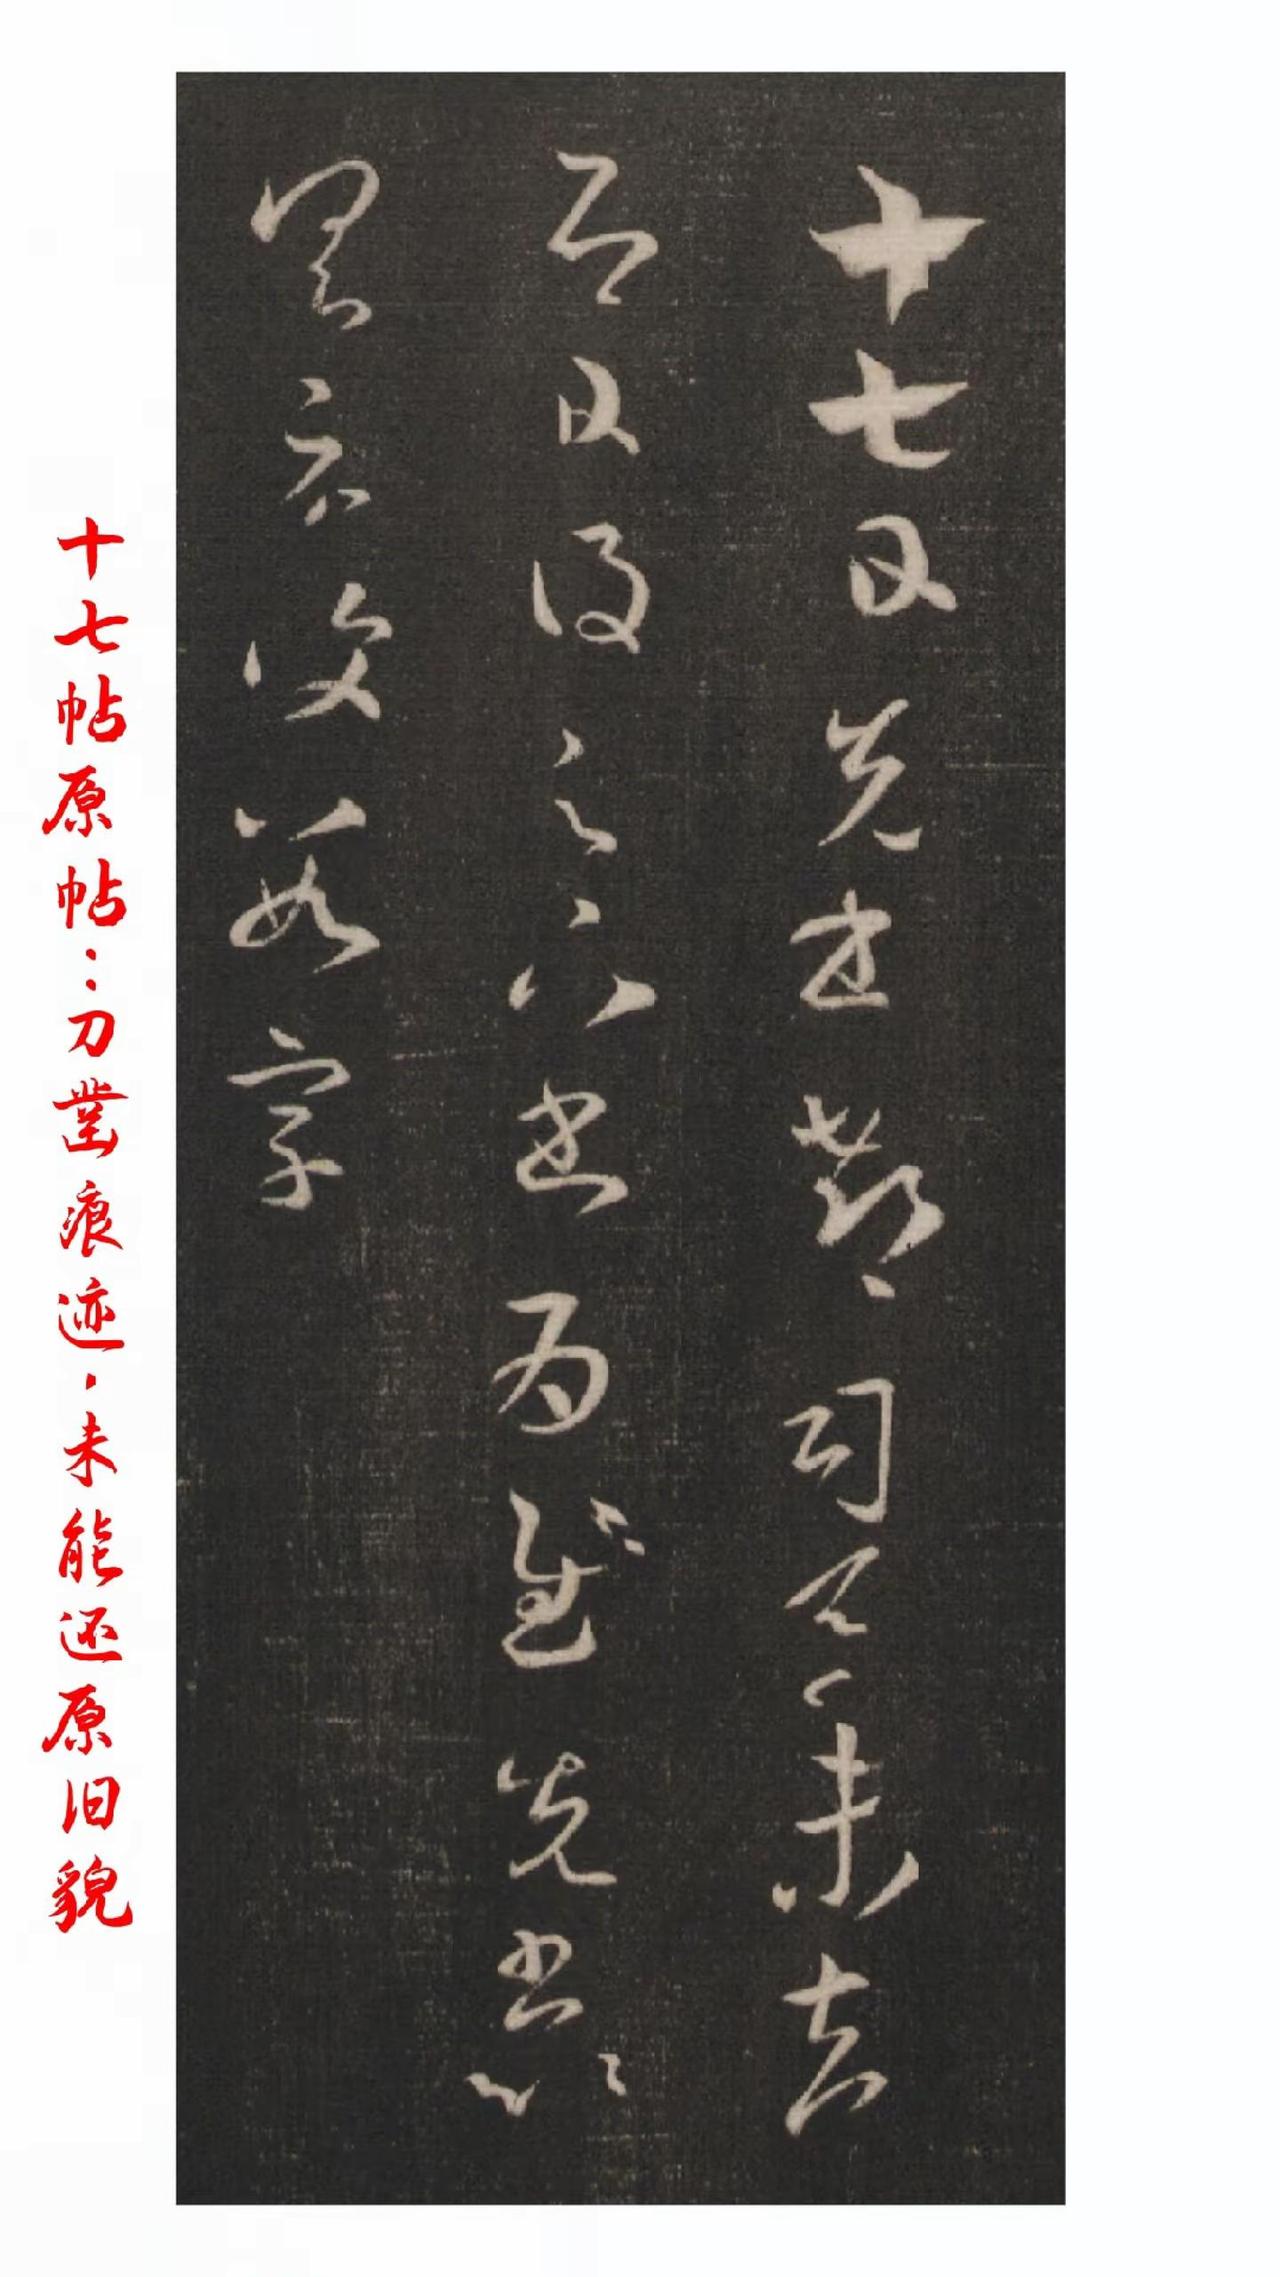 十七日先書郗司馬未去
即日得足下書為慰先書以
具示復數字
十七帖原帖：刀凿痕迹，未能还原旧貌